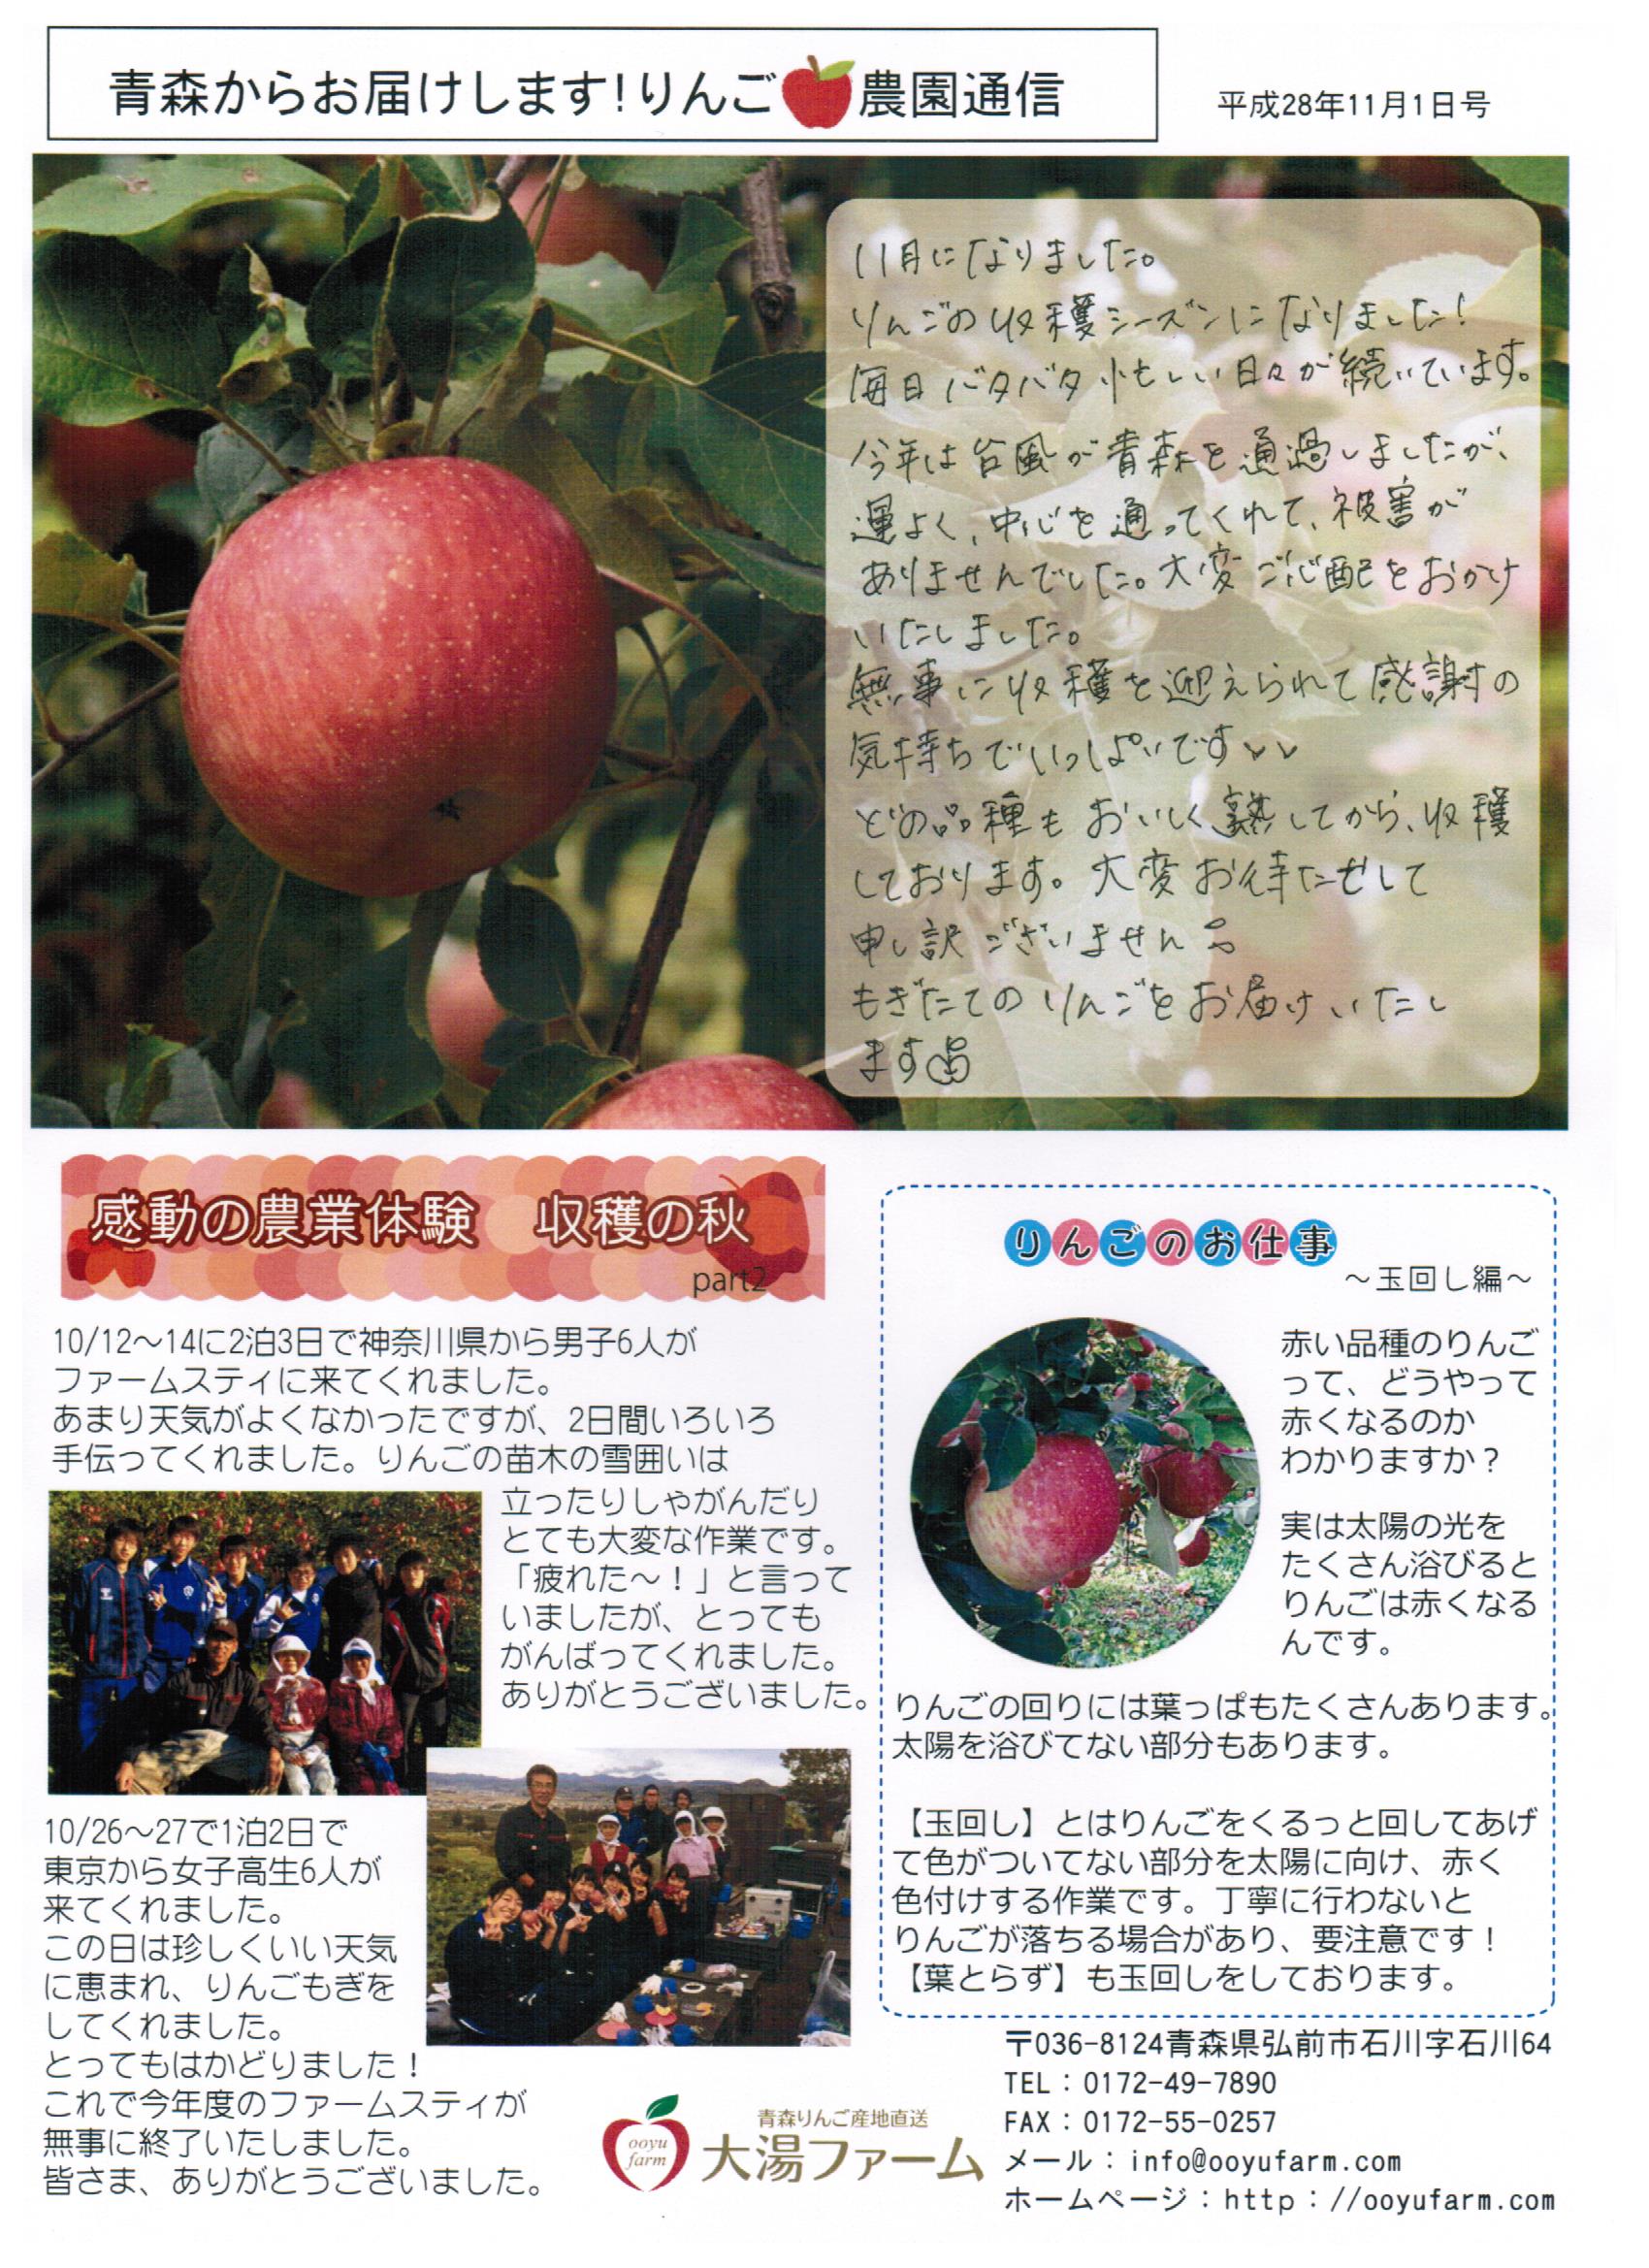 青森からお届けします!りんご農園通信
平成28年11月1日号
11月になりました。
りんごの収穫シーズンになりました!
毎日バタバタ忙しい日々が続いています。
今年は台風が青森を通過しましたが、
運よく、中心を通ってくれて、被害が
ありませんでした。大変ご心配をおかけ
いたしました。
無事に収穫を迎えられて感謝の
気持ちでいっぱいです
どの品種もおいしく熟してから、収穫
しております。大変お待たせして
申し訳ございません
もぎたてのりんごをお届けいたし
ます
感動の農業体験 収穫の秋
part2
10/12~14に2泊3日で神奈川県から男子6人が
ファームスティに来てくれました。
あまり天気がよくなかったですが、2日間いろいろ
手伝ってくれました。りんごの苗木の雪囲いは
立ったりしゃがんだり
とても大変な作業です。
「疲れた~!」と言って
いましたが、とっても
がんばってくれました。
ありがとうございました。
10/26~27で1泊2日で
東京から女子高生6人が
来てくれました。
この日は珍しくいい天気
に恵まれ、りんごもぎを
してくれました。
とってもはかどりました!
これで今年度のファームスティが
無事に終了いたしました。
皆さま、ありがとうございました。
りんごのお仕事
~玉回し編~
赤い品種のりんご
って、どうやって
赤くなるのか
わかりますか?
実は太陽の光を
たくさん浴びると
りんごは赤くなる
んです。
りんごの回りには葉っぱもたくさんあります。
太陽を浴びてない部分もあります。
【玉回し】とはりんごをくるっと回してあげ
て色がついてない部分を太陽に向け、赤く
色付けする作業です。丁寧に行わないと
りんごが落ちる場合があり、要注意です!
【葉とらず】も玉回しをしております。
ooyu
farm
青森りんご産地直送
大湯ファーム
〒036-8124青森県弘前市石川字石川64
TEL:0172-49-7890
FAX:0172-55-0257
メール:info@ooyufarm.com
ホームページ:http://ooyufarm.com